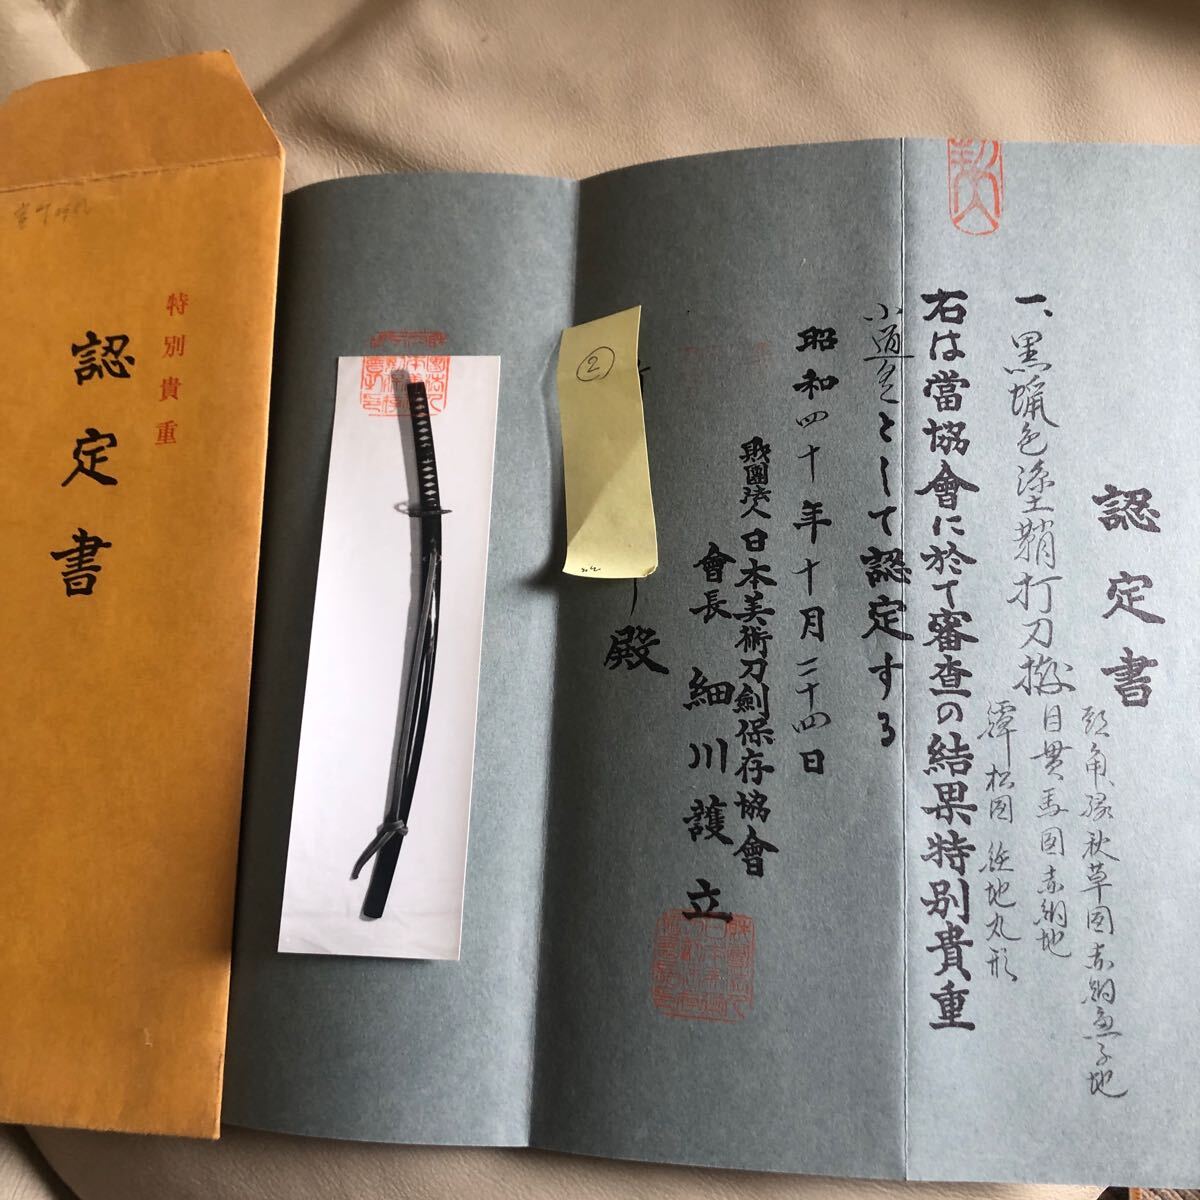 認定書
一、黒蝋色塗鞘打刀拵
頭角、縁秋草図赤銅魚子地
目貫馬図赤銅地
鐔松図鉄地丸形
右は當協會に於て審査の結果特別貴重
小道具として認定する
昭和四十年十月二十四日
財團法人日本美術刀劍保存協會
會長 細川護立
殿
②
特別貴重
認定書